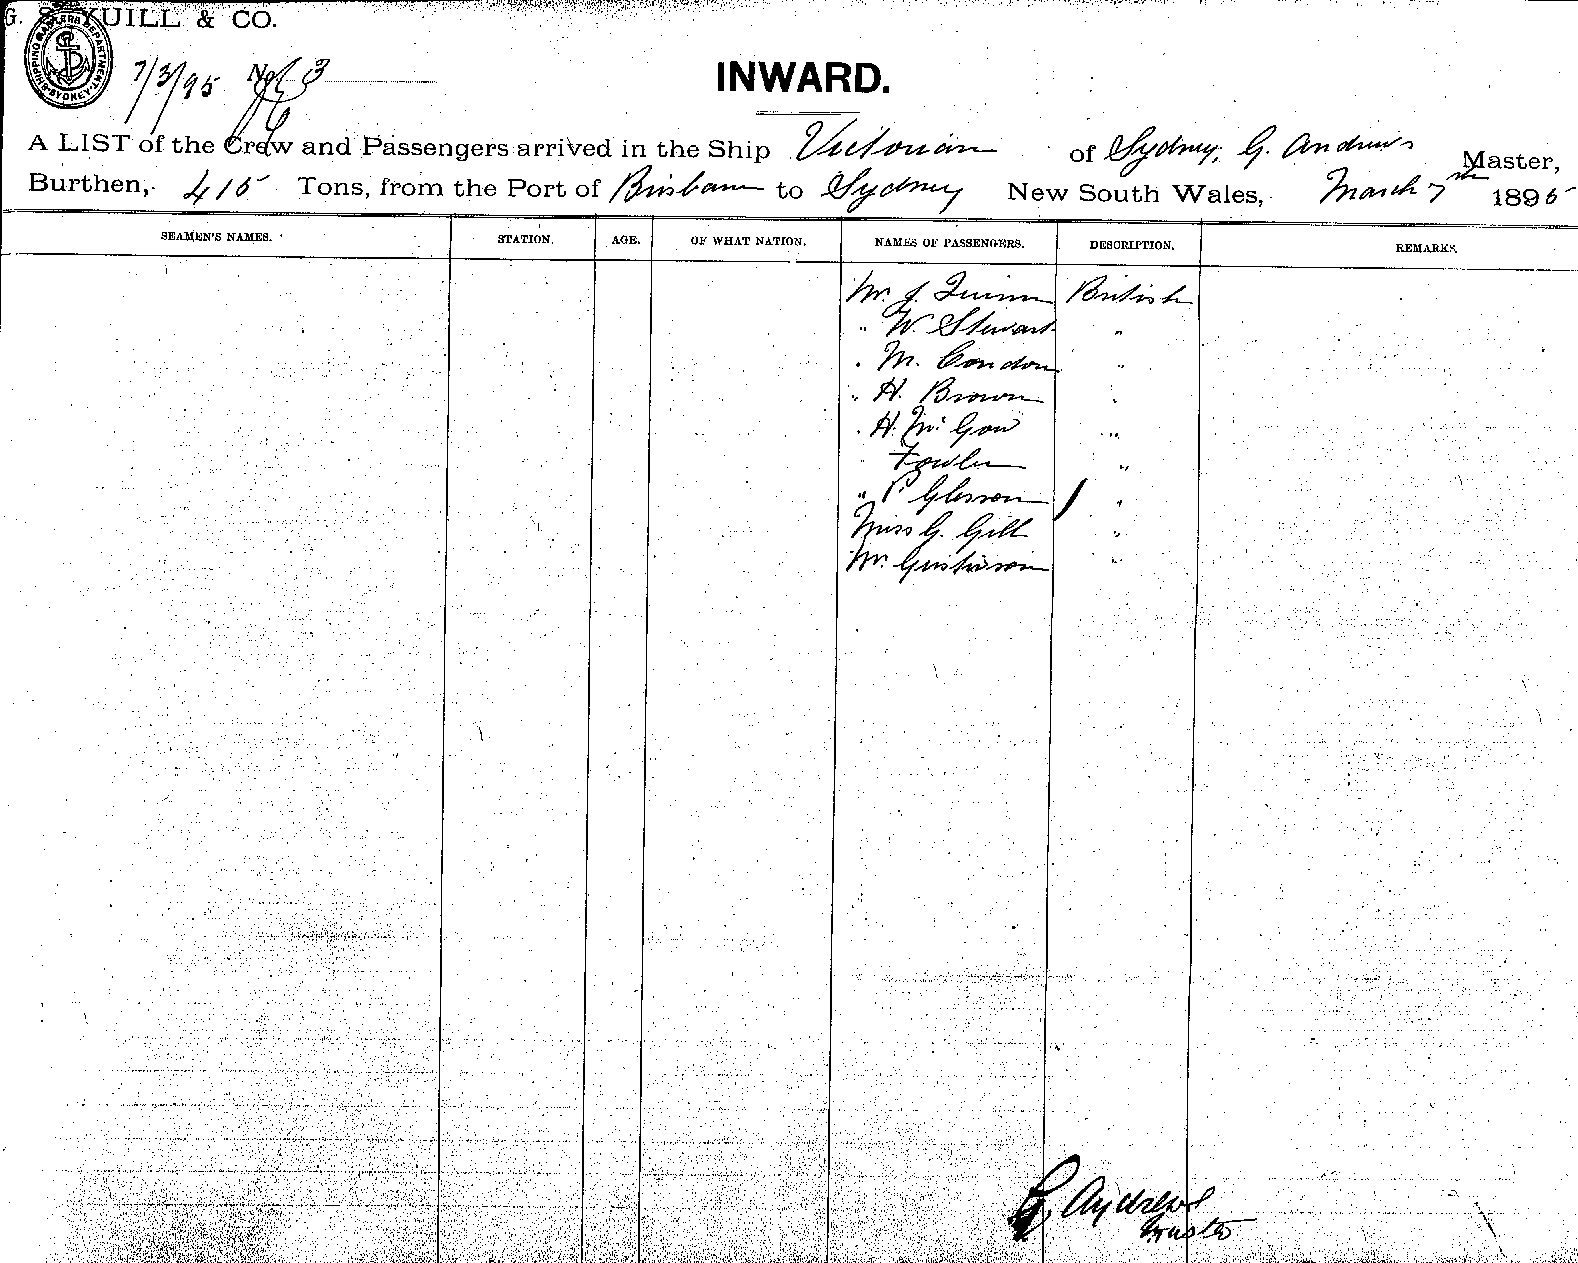 G. S. YUILL & CO.
SHIPPING MASTERS DEPARTMENT SYDNEY
7/3/95 No. 3
INWARD.
A LIST of the Crew and Passengers arrived in the Ship Victorian of Sydney, G. Andrews Master,
Burthen, 415 Tons, from the Port of Brisbane to Sydney New South Wales, March 7th 1895
SEAMEN'S NAMES. STATION. AGE. OF WHAT NATION. NAMES OF PASSENGERS. DESCRIPTION. REMARKS.
Mr. J. Quinn British
" W. Stewart "
" M. Condon "
" H. Brown "
" H. Mc Gow "
Fowler "
" P. Glesson "
Miss G. Gill "
Mr. Gustavson "
G. Andrews
Master